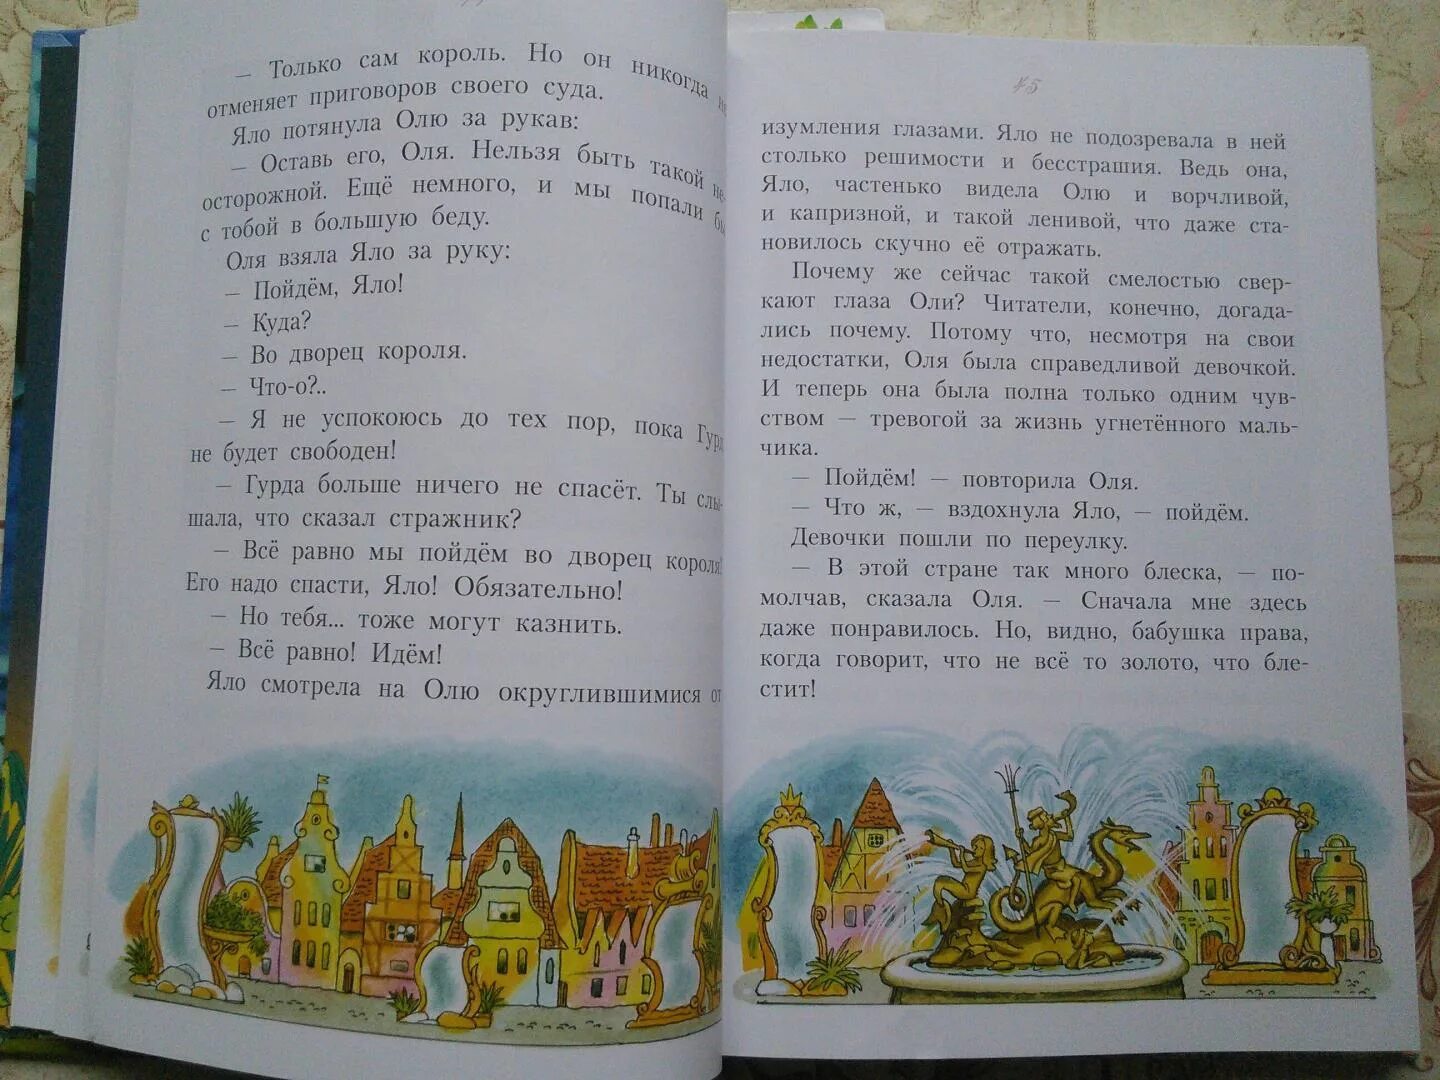 — Только сам король. Но он никогда не
отменяет приговоров своего суда.
Яло потянула Олю за рукав:
— Оставь его, Оля. Нельзя быть такой не-
осторожной. Ещё немного, и мы попали бы
с тобой в большую беду.
Оля взяла Яло за руку:
— Пойдём, Яло!
— Куда?
— Во дворец короля.
— Что-о?..
— Я не успокоюсь до тех пор, пока Гурд
не будет свободен!
— Гурда больше ничего не спасёт. Ты слы-
шала, что сказал стражник?
— Всё равно мы пойдём во дворец короля!
Его надо спасти, Яло! Обязательно!
— Но тебя... тоже могут казнить.
— Всё равно! Идём!
Яло смотрела на Олю округлившимися от
45
изумления глазами. Яло не подозревала в ней
столько решимости и бесстрашия. Ведь она,
Яло, частенько видела Олю и ворчливой,
и капризной, и такой ленивой, что даже ста-
новилось скучно её отражать.
Почему же сейчас такой смелостью свер-
кают глаза Оли? Читатели, конечно, догада-
лись почему. Потому что, несмотря на свои
недостатки, Оля была справедливой девочкой.
И теперь она была полна только одним чув-
ством — тревогой за жизнь угнетённого маль-
чика.
— Пойдём! — повторила Оля.
— Что ж, — вздохнула Яло, — пойдём.
Девочки пошли по переулку.
— В этой стране так много блеска, — по-
молчав, сказала Оля. — Сначала мне здесь
даже понравилось. Но, видно, бабушка права,
когда говорит, что не всё то золото, что бле-
стит!